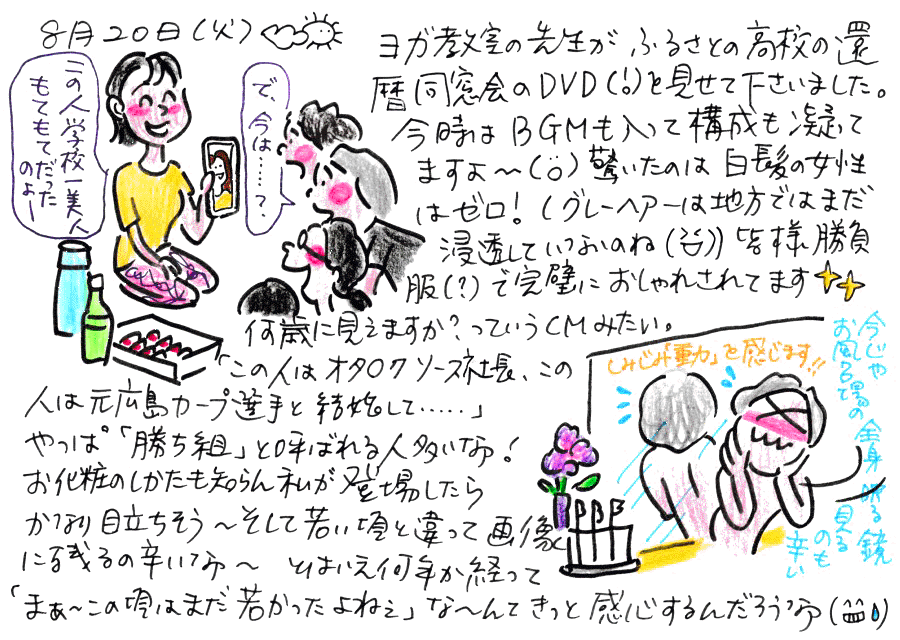 8月20日(火)
この人学校一美人
もてもてだった
のよー
で、今は……?
ヨガ教室の先生が ふるさとの高校の還
暦同窓会のDVD(!o)を見せて下さいました。
今時は BGMも入って構成も凝って
ますよ〜(ö) 驚いたのは 白髪の女性
はゼロ!(グレーヘアーは地方ではまだ
浸透していないのね) 皆様 勝負
服(?)で完璧に おしゃれされてます
何歳に見えますか?っていうCMみたい。
「この人はオタ〇クソース社長、この
人は元広島カープ選手と結婚して……」
やっぱ「勝ち組」と呼ばれる人多いなぁ!
お化粧のしかたも知らん私が登場したら
かなり目立ちそう〜そして若い頃と違って画像
に残るの辛いなぁ〜 とはいえ何年か経って
「まぁ〜この頃はまだ若かったよねぇ」な〜んてきっと感心するんだろうなぁ
しみじみ「重力」を感じます!!
今じゃ
お風呂場の
全身映る鏡
見る
のも
辛い